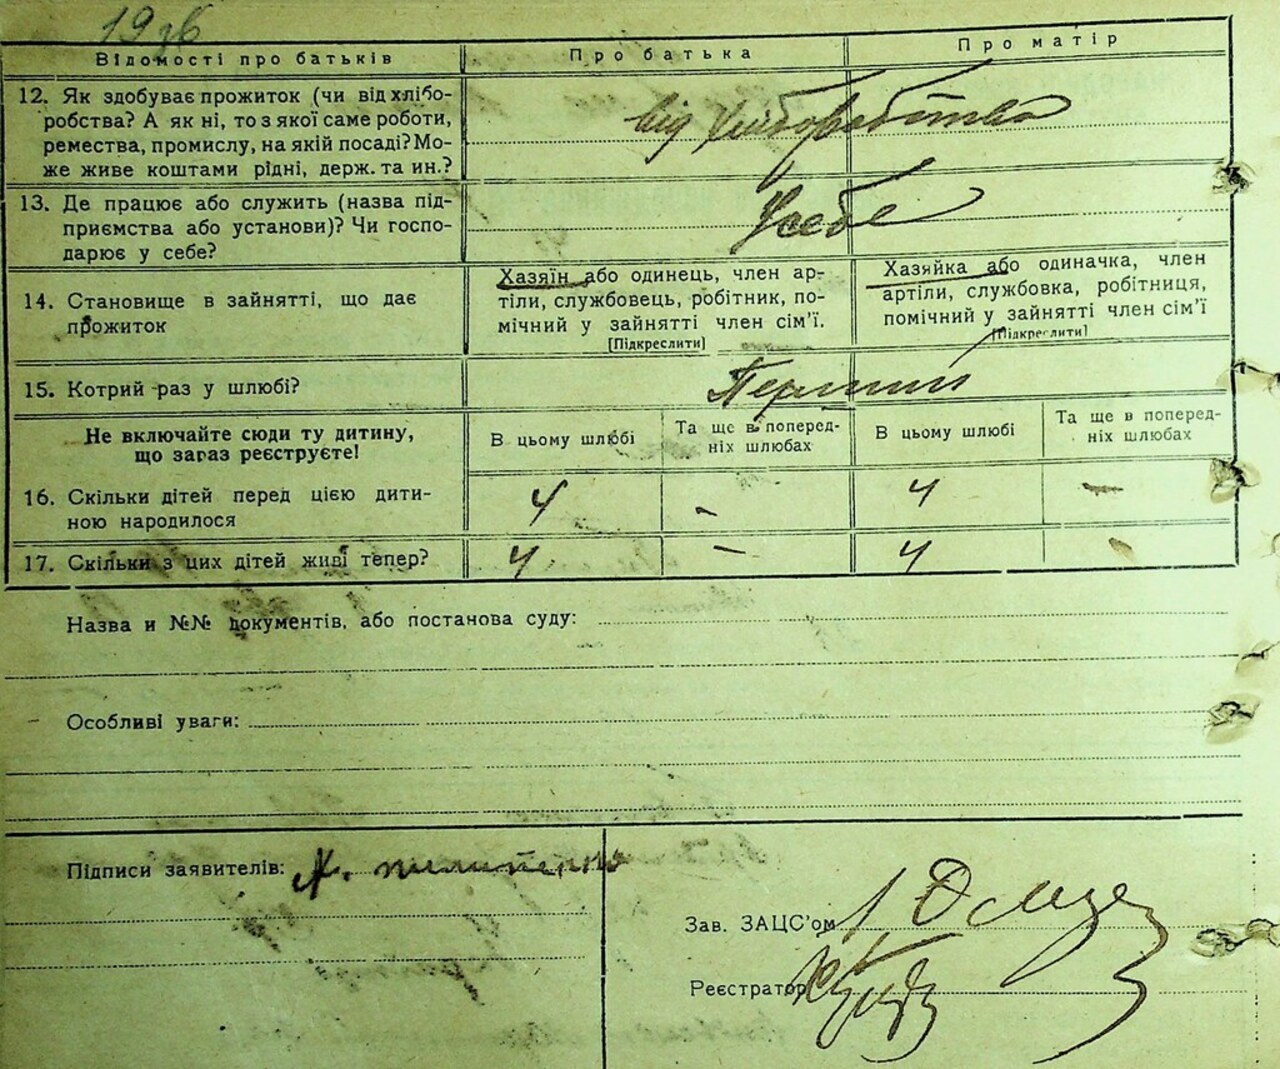 Відомості про батьків Про батька Про матір
12. Як здобуває прожиток (чи від хлібо-
робства? А як ні, то з якої саме роботи,
ремества, промислу, на якій посаді? Мо-
же живе коштами рідні, держ. та ин.?
від хліборобства
13. Де працює або служить (назва під-
приємства або установи)? Чи госпо-
дарює у себе?
У себе
14. Становище в зайнятті, що дає
прожиток
Хазяїн або одинець, член ар-
тіли, службовець, робітник, по-
мічний у зайнятті член сім'ї.
[Підкреслити]
Хазяйка або одиначка, член
артіли, службовка, робітниця,
помічний у зайнятті член сім'ї
[Підкреслити]
15. Котрий раз у шлюбі?
Перший
Не включайте сюди ту дитину,
що зараз реєструєте!
В цьому шлюбі
Та ще в поперед-
ніх шлюбах
В цьому шлюбі
Та ще в поперед-
ніх шлюбах
16. Скільки дітей перед цією дити-
ною народилося
4 - 4 -
17. Скільки з цих дітей живі тепер?
4 - 4 -
Назва и №№ документів, або постанова суду:
Особливі уваги:
Підписи заявителів:
Зав. ЗАЦС'ом
Реєстратор